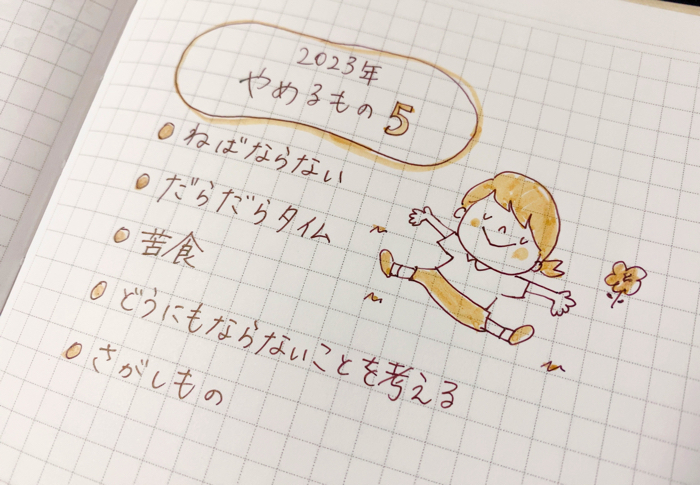 2023年
やめるもの 5
ねばならない
だらだらタイム
苦食
どうにもならないことを考える
さがしもの